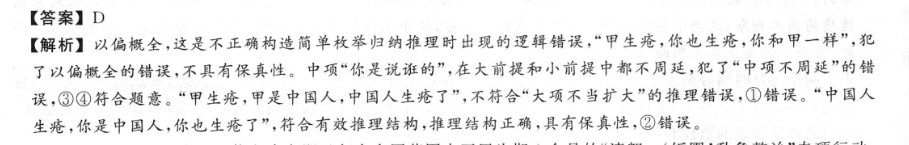 【答案】D
【解析】以偏概全,这是不正确构造简单枚举归纳推理时出现的逻辑错误,“甲生疮,你也生疮,你和甲一样”,犯
了以偏概全的错误,不具有保真性。中项“你是说诳的”,在大前提和小前提中都不周延,犯了“中项不周延”的错
误,③④符合题意。“甲生疮,甲是中国人,中国人生疮了”,不符合“大项不当扩大”的推理错误,①错误。“中国人
生疮,你是中国人,你也生疮了”,符合有效推理结构,推理结构正确,具有保真性,②错误。